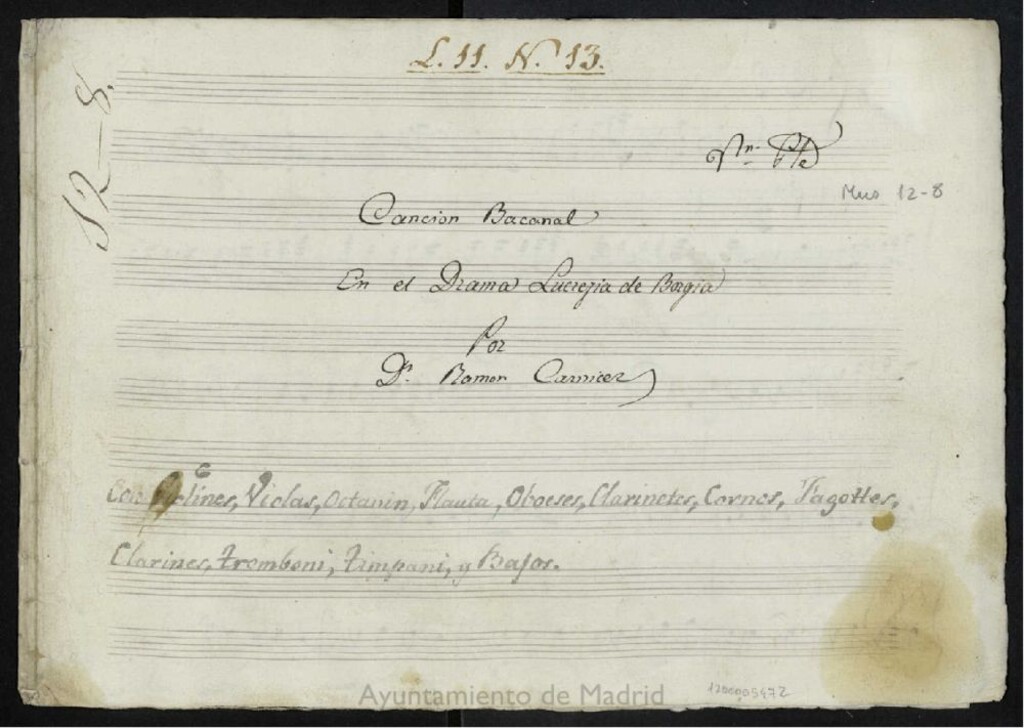 L. 11. N.º 13.
12-8.
Mus 12-8
Cancion Bacanal
En el Drama Lucrezia de Borgia
Por
Dn. Ramon Carnicer
Con Violines, Violas, Octavin, Flauta, Oboeses, Clarinetes, Cornos, Fagottes,
Clarines, tromboni, timpani, y Bajos.
Ayuntamiento de Madrid
1200005472